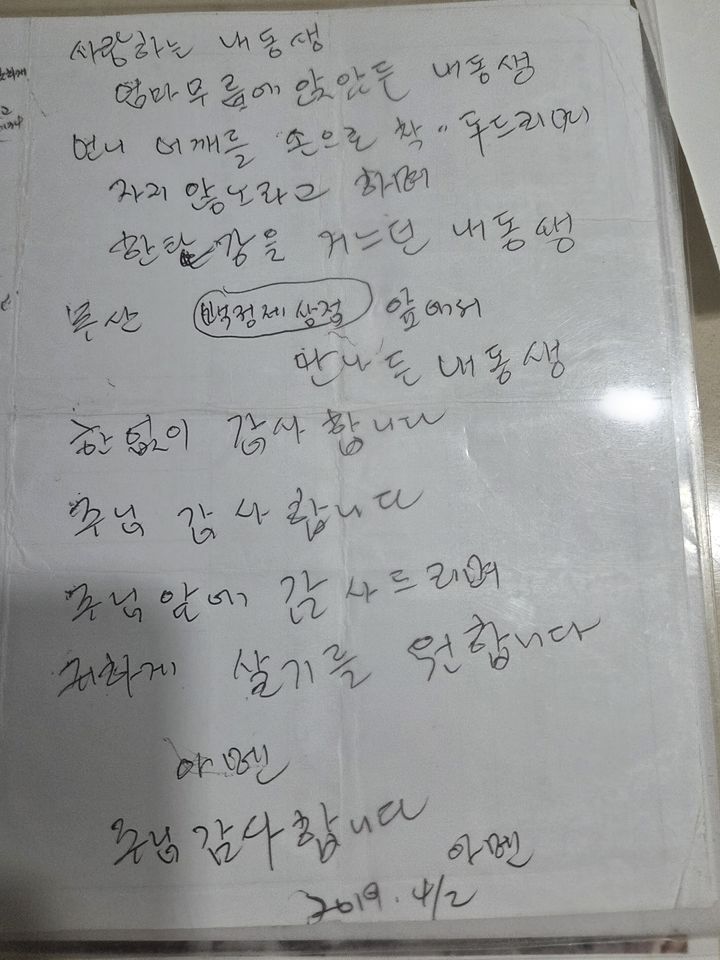 사랑하는 내동생
엄마무릎에 앉안든 내동생
언니 어깨를 손으로 착〃 두드리며
자지 않노라고 하며
한탄강을 거느던 내동생
문산 백정제상점 앞에서
만나든 내동생
한없이 감사합니다
주님 감사합니다
주님앞에 감사드리며
귀하게 살기를 원합니다
아멘
주님감사합니다
아멘
2019. 4/2